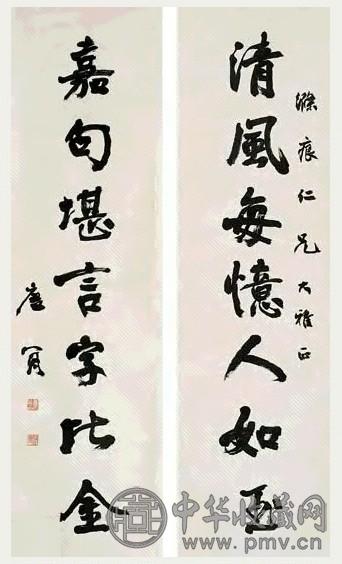 滌痕仁兄大雅正
清風每憶人如玉
嘉句堪言字比金
唐肎
中华收藏网
www.pmv.cn